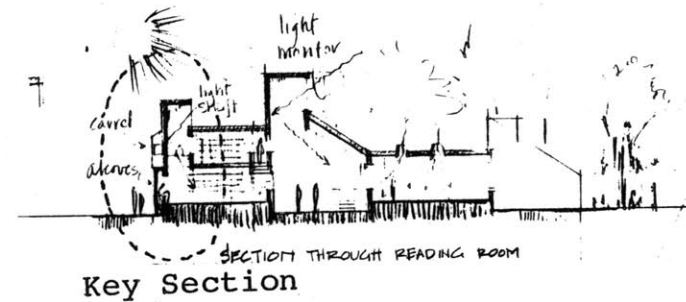 light
monitor
light
shaft
carrel
alcoves,
SECTION THROUGH READING ROOM
Key Section